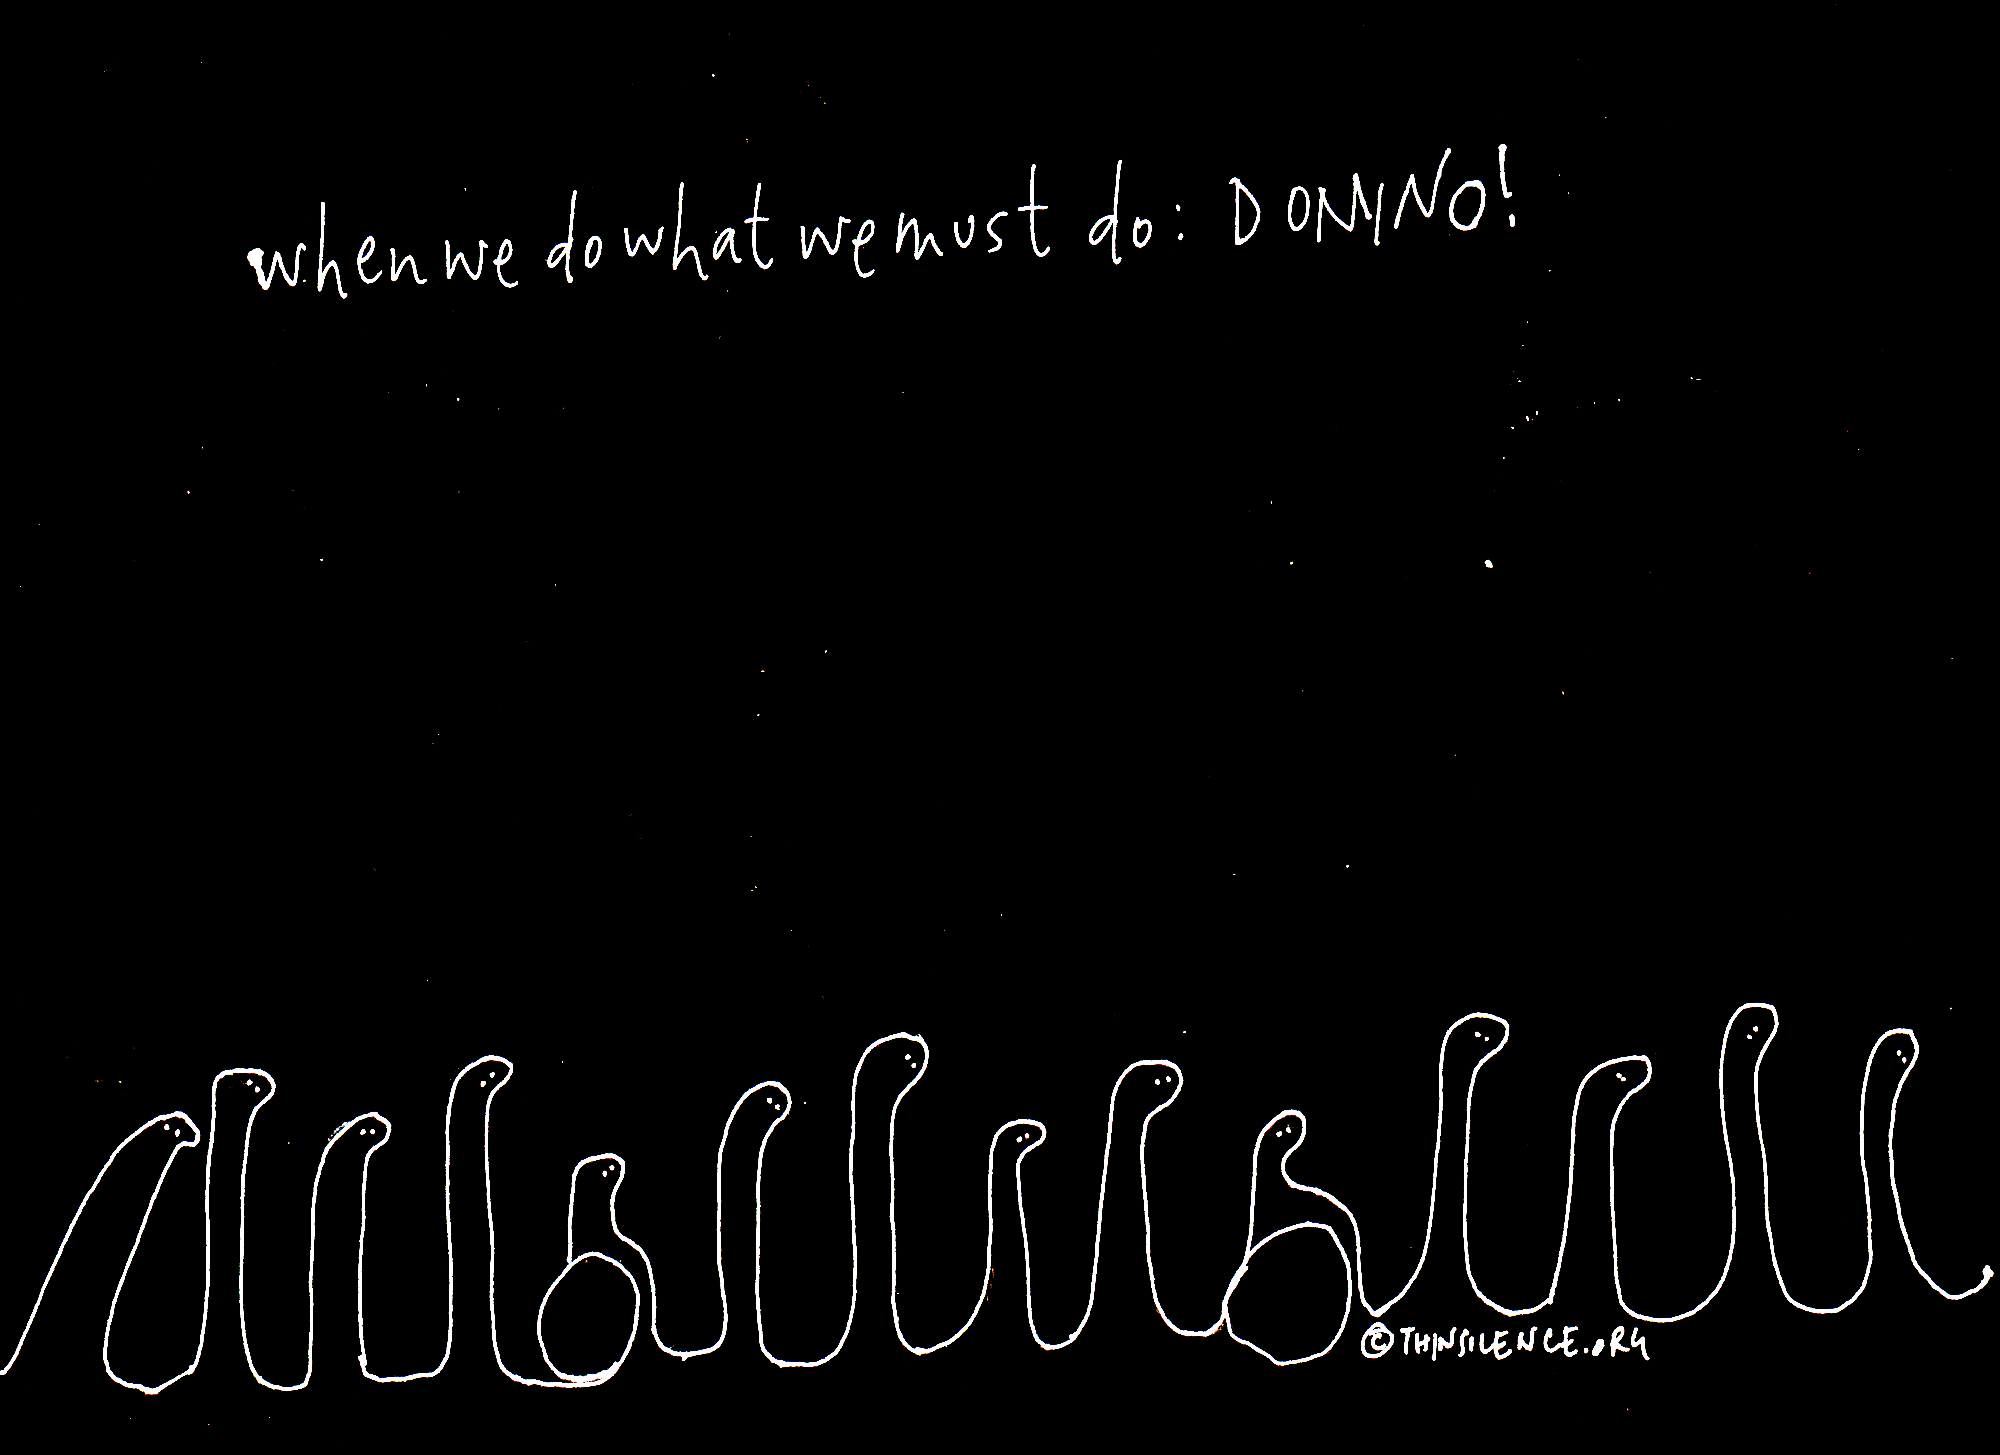 when we do what we must do: DOMINO!
© THINSILENCE.ORG